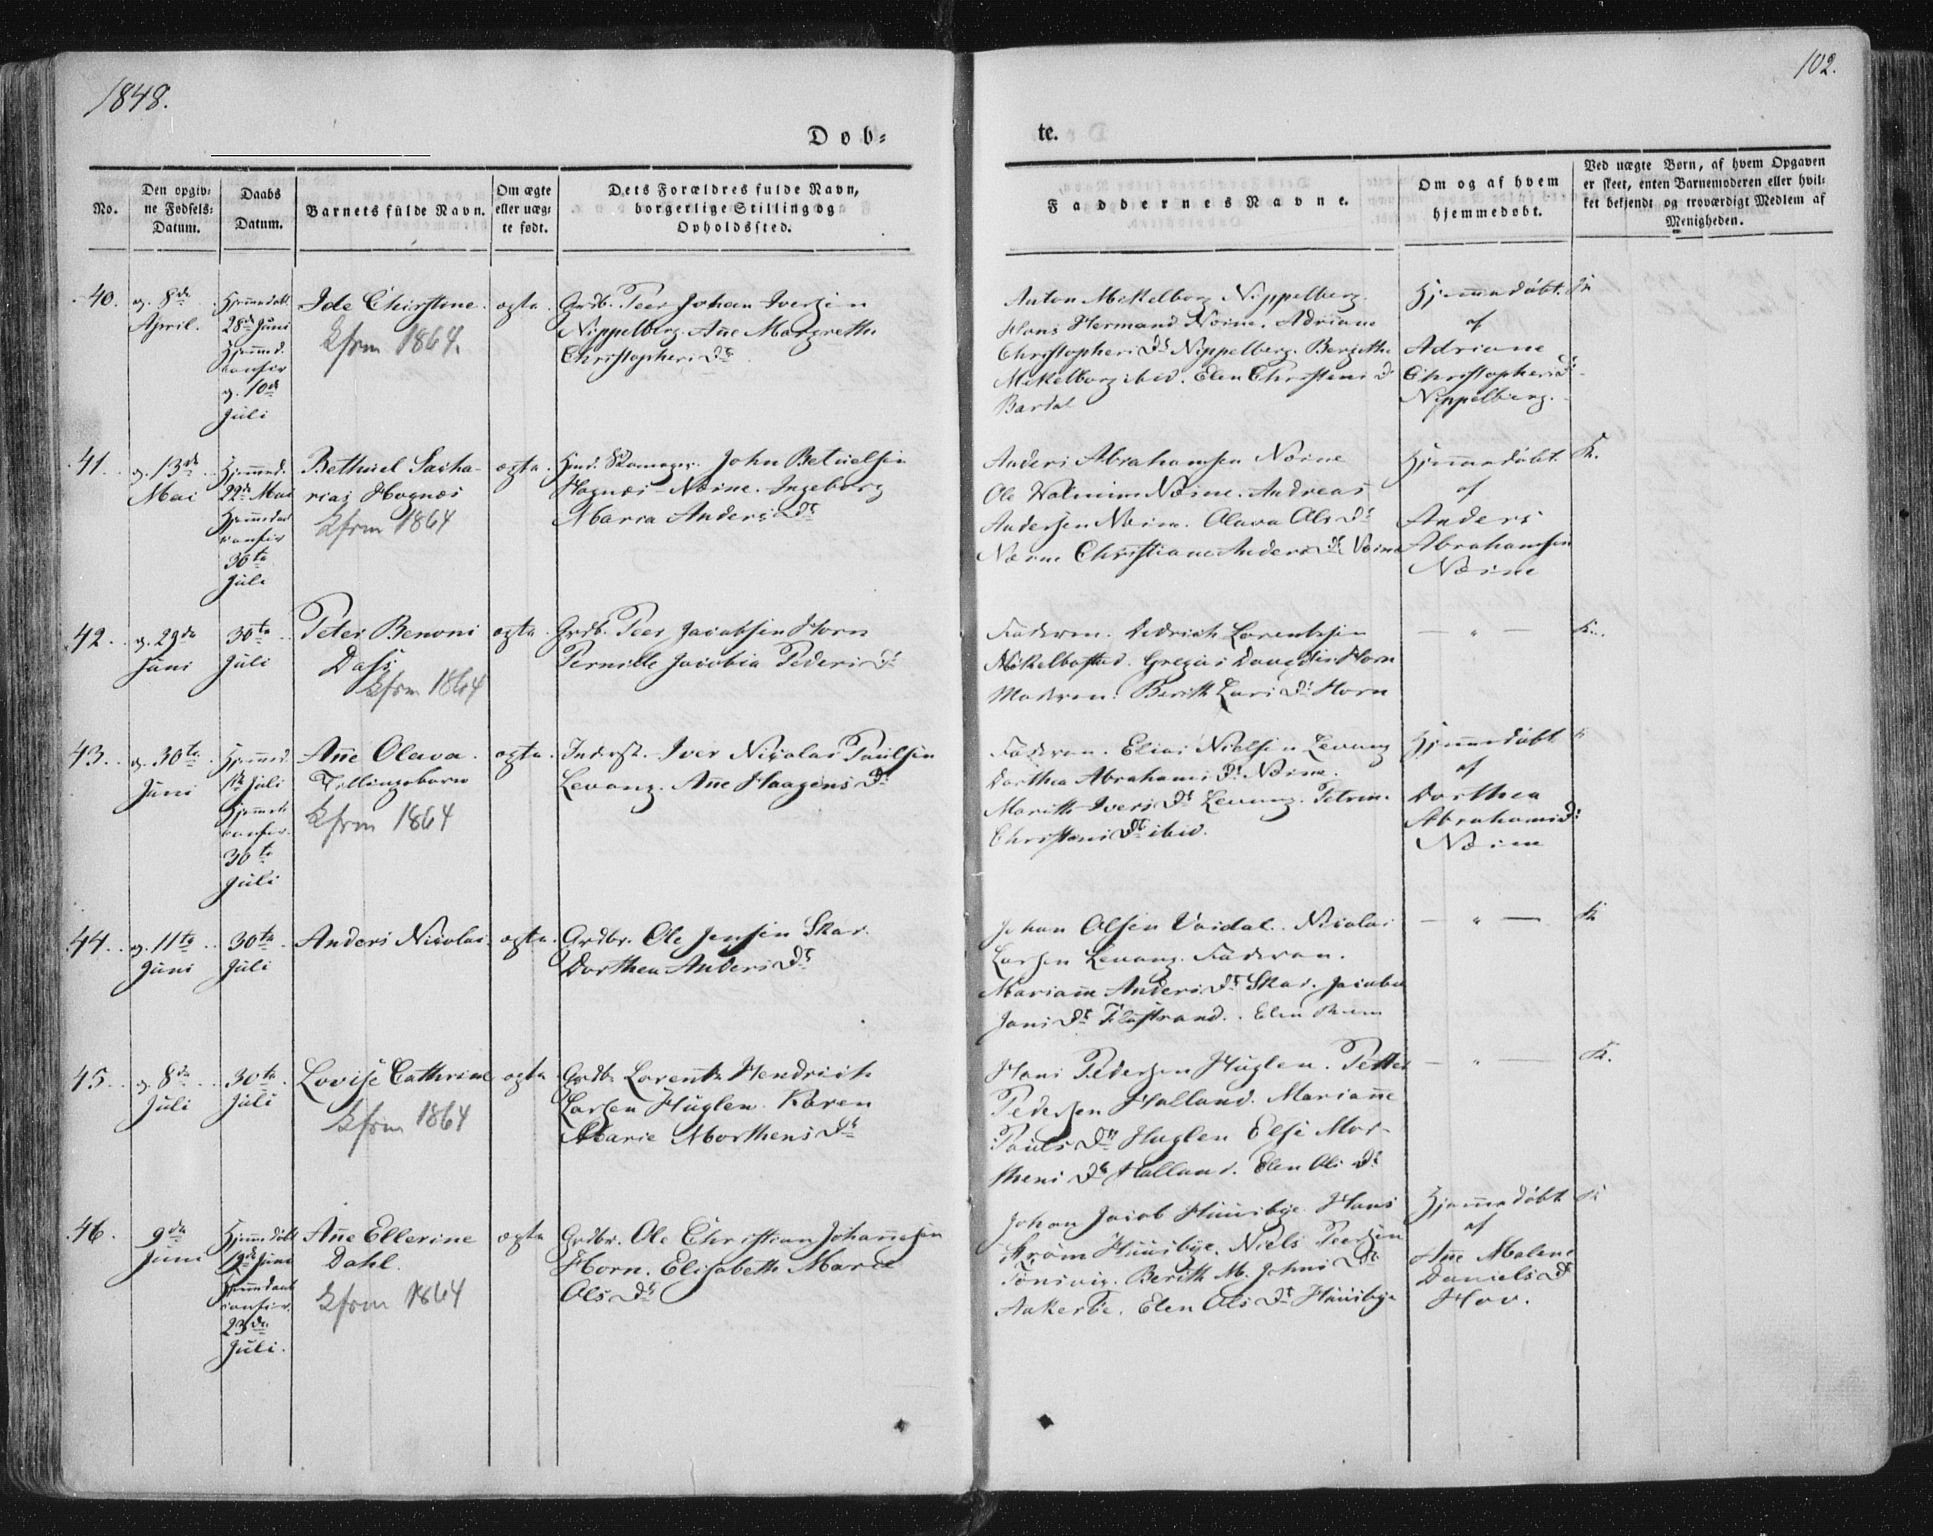 1848.
102.
Dob=
te.
No.
Den opgiv=
ne Fødsels=
Datum.
Daabs
Datum.
Barnets fulde Navn.
Om ægte
eller uæg=
te født.
Dets Forældres fulde Navn,
borgerlige Stilling og
Opholdssted.
Faddernes Navne.
Om og af hvem
hjemmedøbt.
Ved uægte Børn, af hvem Opgaven
er skeet, enten Barnemoderen eller hvil=
ket bekjendt og troværdigt Medlem af
Menigheden.
40.
8de
April.
Hjemmedøbt
28de Juni
Hjemmed.
confir
10de
Juli
Ide Christine
Kfrm 1864.
ægte.
Grdb. Peer Johan Iversen
Nippelberg. Ane Margrethe
Christophers Dr
Anton Mikelborg Nippelberg.
Hans Hermand Næsne. Adriane
Christophers Dr Nippelberg. Bergithe
Mikelborg ibid. Elen Christens Dr
Bardal
Hjemmedøbt
af
Adriane
Christophers Dr
Nippelberg.
41.
13de
Mai
Hjemmed.
22de Mai
confir
30te
Juli
Bethuel Sacha-
rias Hognæs
Kfrm 1864
ægte.
John Betuelsen
Hognæs Næsne. Ingeborg
Maria Anders Dr
Anders Abrahamsen Næsne
Ole Næsne. Andreas
Andersen Næsne. Olava Ols Dr
Næsne Christiane Anders Dr Næsne
Hjemmedøbt
af
Anders
Abrahamsen
Næsne
42.
29de
Juni
30te
Juli
Peter Benoni
Dass
Kfrm 1864
ægte.
Grdb. Peer Jacobsen Horn
Pernille Jacobia Peders Dr
Faderen. Didrich Lorentzsen
Mikelbostad. Horn
Moderen. Berith Lars Dr Horn
— " —
43.
30te
Juni
Hjemmed.
1te Juli
Hjemmed.
confir.
30te
Juli
Ane Olava
Tvillingebarn
Kfrm 1864
ægte.
Inderst. Iver Nicolai Paulsen
Levang. Ane Haagens Dr
Faderen. Elias Nielsen Levang
Dorthea Abrahams Dr Næsne.
Marith Ivers Dr Levang. Petrine
Christens Dr ibid.
Hjemmedøbt
af
Dorthea
Abrahams Dr
Næsne
44.
11te
Juni
30te
Juli
Anders Nicolai
ægte.
Grdbr. Ole Jensen Skar.
Dorthea Anders Dr
Johan Olsen Nicolai
Larsen Levang. Faderen.
Mariane Anders Dr Skar. Jacobia
Jens Dr Flostrand. Elen
— " —
45.
8de
Juli
30te
Juli
Lovise Cathrine
Kfrm 1864
ægte
Grdbr Lorentz Hendrich
Larsen Huglen. Karen
Marie Morthens Dr
Hans Pedersen Huglen. Petter
Pedersen Halland. Mariane
Pauls Dr Huglen Else Mor-
thens Dr Halland. Elen Ols Dr
— " —
46.
9de
Juni
Hjemmedøbt
19de Juni
confir.
23de
Juli.
Ane Ellerine
Dahl.
Kfrm 1864
ægte
Grdbr. Ole Christian Johannesen
Horn. Elisabeth Marie
Ols Dr
Johan Jacob Huusbye. Hans
Strøm Huusbye. Niels Peersen
Tønvig. Berith M. Johns Dr
Aakerøe. Elen Ols Dr Huusbye
Hjemmedøbt
af
Ane Malene
Daniels Dr
Hov.